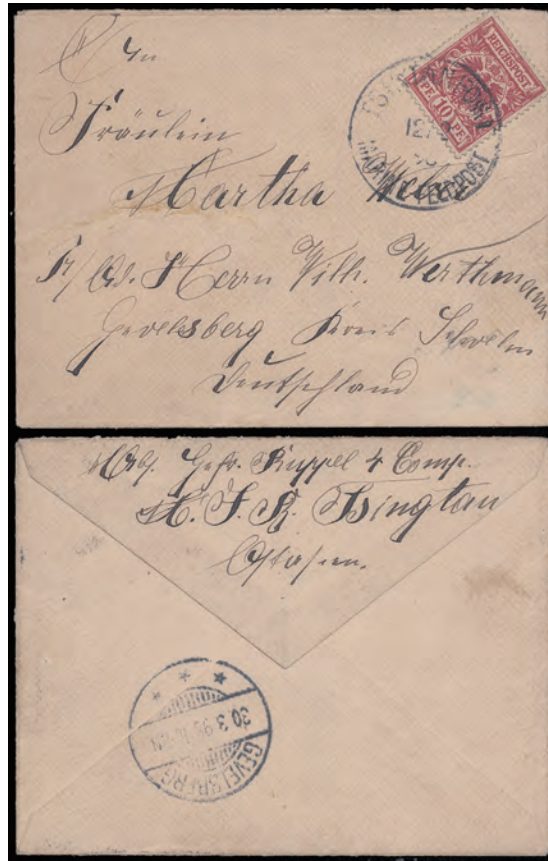 An
Fräulein
Martha
p/ Ad. Herrn Wilh. Werthmann
Gevelsberg Kreis Schwelm
Deutschland
REICHSPOST
PF 10 PF
MARINE-FELDPOST
Abs. Gefr. Ruppel 4 Comp.
Tsingtau
Ostasien.
30.3.98
GEVELSBERG